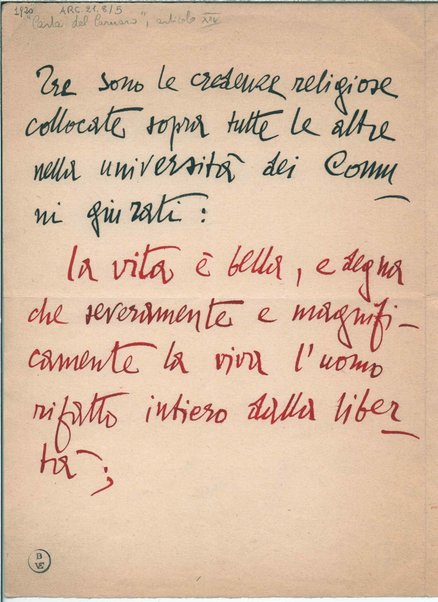 1920 ARC.21.8/5
"Carta del Carnaro", articolo XIV
Tre sono le credenze religiose
collocate sopra tutte le altre
nella università dei Comu
ni giurati:
la vita è bella, e degna
che severamente e magnifi-
camente la viva l'uomo
rifatto intiero dalla liber
tà;
B
VE